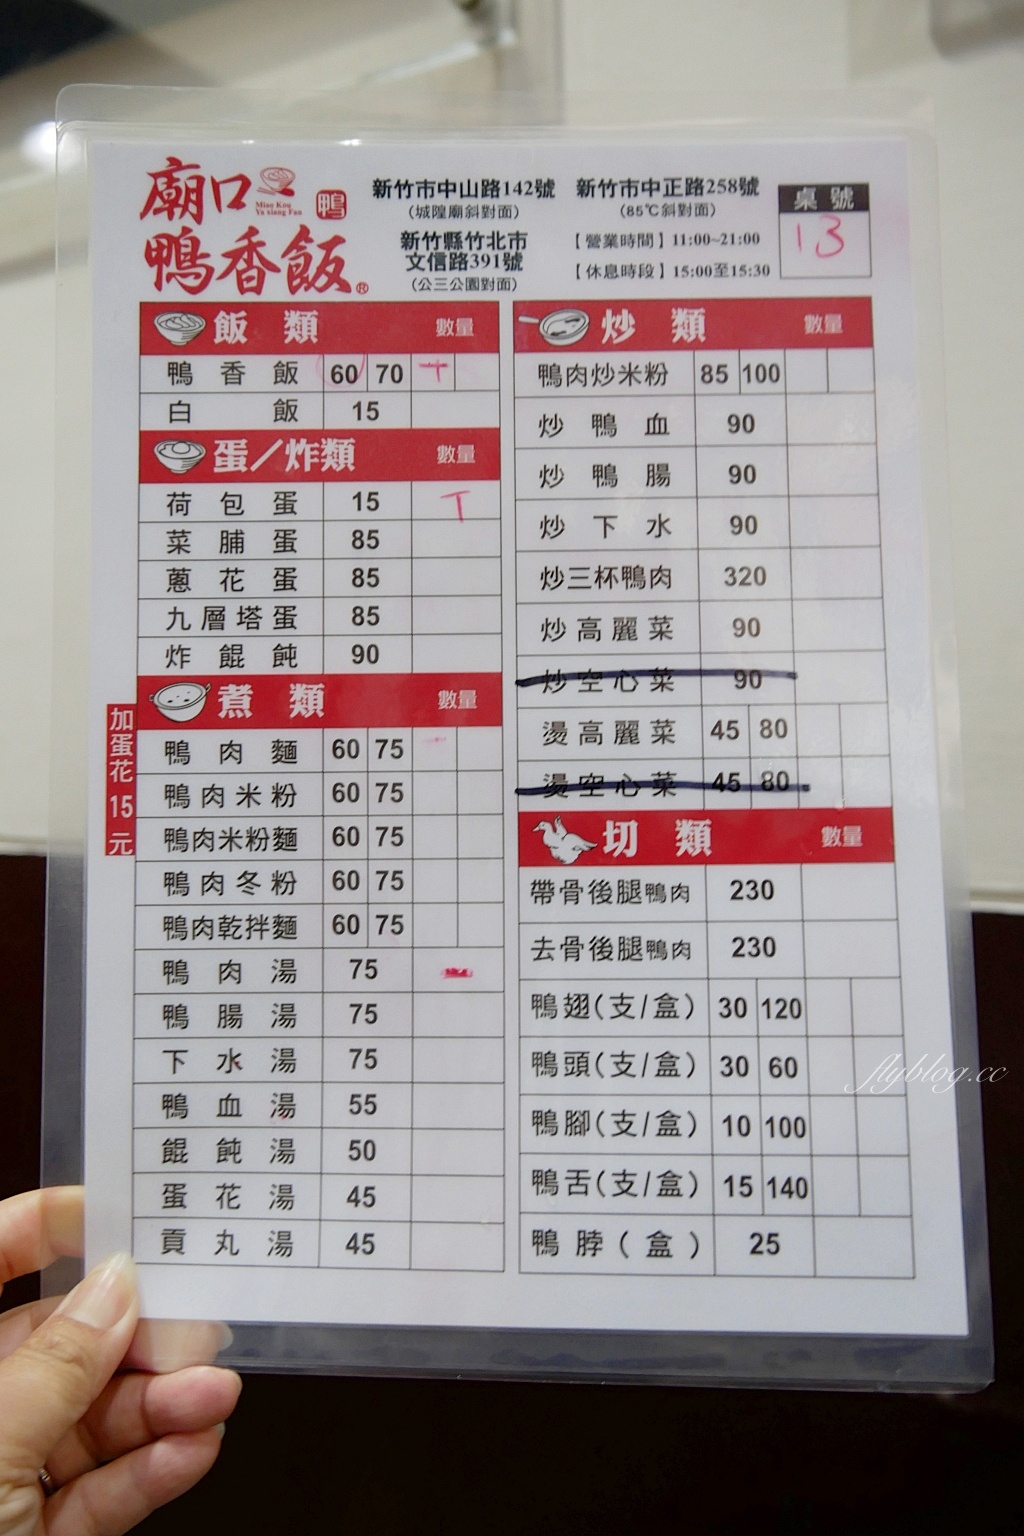 廟口
Miao Kou
Ya xiang Fan
鴨
鴨香飯®
新竹市中山路142號
(城隍廟斜對面)
新竹縣竹北市
文信路391號
(公三公園對面)
新竹市中正路258號
(85℃斜對面)
【營業時間】11:00~21:00
【休息時段】15:00至15:30
桌號
13
飯類 數量
鴨香飯 60 70 一
白飯 15
蛋／炸類 數量
荷包蛋 15 T
菜脯蛋 85
蔥花蛋 85
九層塔蛋 85
炸餛飩 90
煮類 數量
加蛋花15元
鴨肉麵 60 75
鴨肉米粉 60 75
鴨肉米粉麵 60 75
鴨肉冬粉 60 75
鴨肉乾拌麵 60 75
鴨肉湯 75
鴨腸湯 75
下水湯 75
鴨血湯 55
餛飩湯 50
蛋花湯 45
貢丸湯 45
炒類 數量
鴨肉炒米粉 85 100
炒鴨血 90
炒鴨腸 90
炒下水 90
炒三杯鴨肉 320
炒高麗菜 90
炒空心菜 90
燙高麗菜 45 80
燙空心菜 45 80
切類 數量
帶骨後腿鴨肉 230
去骨後腿鴨肉 230
鴨翅(支/盒) 30 120
鴨頭(支/盒) 30 60
鴨腳(支/盒) 10 100
鴨舌(支/盒) 15 140
鴨脖(盒) 25
flyblog.cc